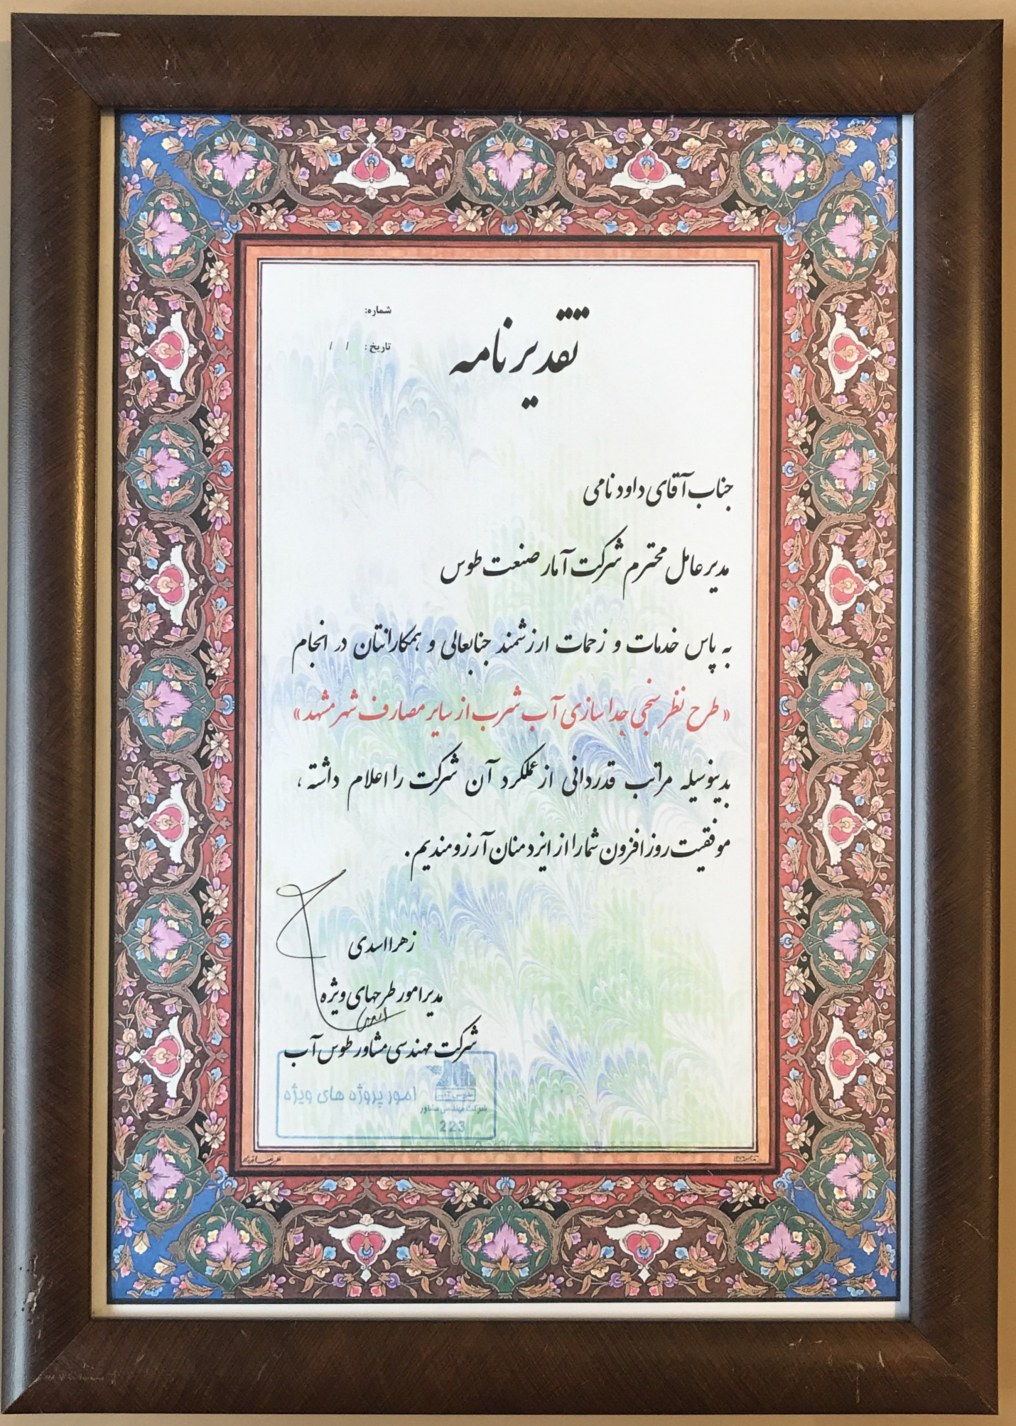 تقدیرنامه
شماره:
تاریخ: / /
جناب آقای داود نامی
مدیرعامل محترم شرکت آمار صنعت طوس
به پاس خدمات و زحمات ارزشمند جنابعالی و همکارانتان در انجام
«طرح نظرسنجی جداسازی آب شرب از سایر مصارف شهر مشهد»
بدینوسیله مراتب قدردانی از عملکرد آن شرکت را اعلام داشته،
موفقیت روزافزون شما را از ایزد منان آرزومندیم.
زهرا اسدی
مدیر امور طرحهای ویژه
شرکت مهندسی مشاور طوس آب
امور پروژه های ویژه
شرکت مهندسی مشاور
223